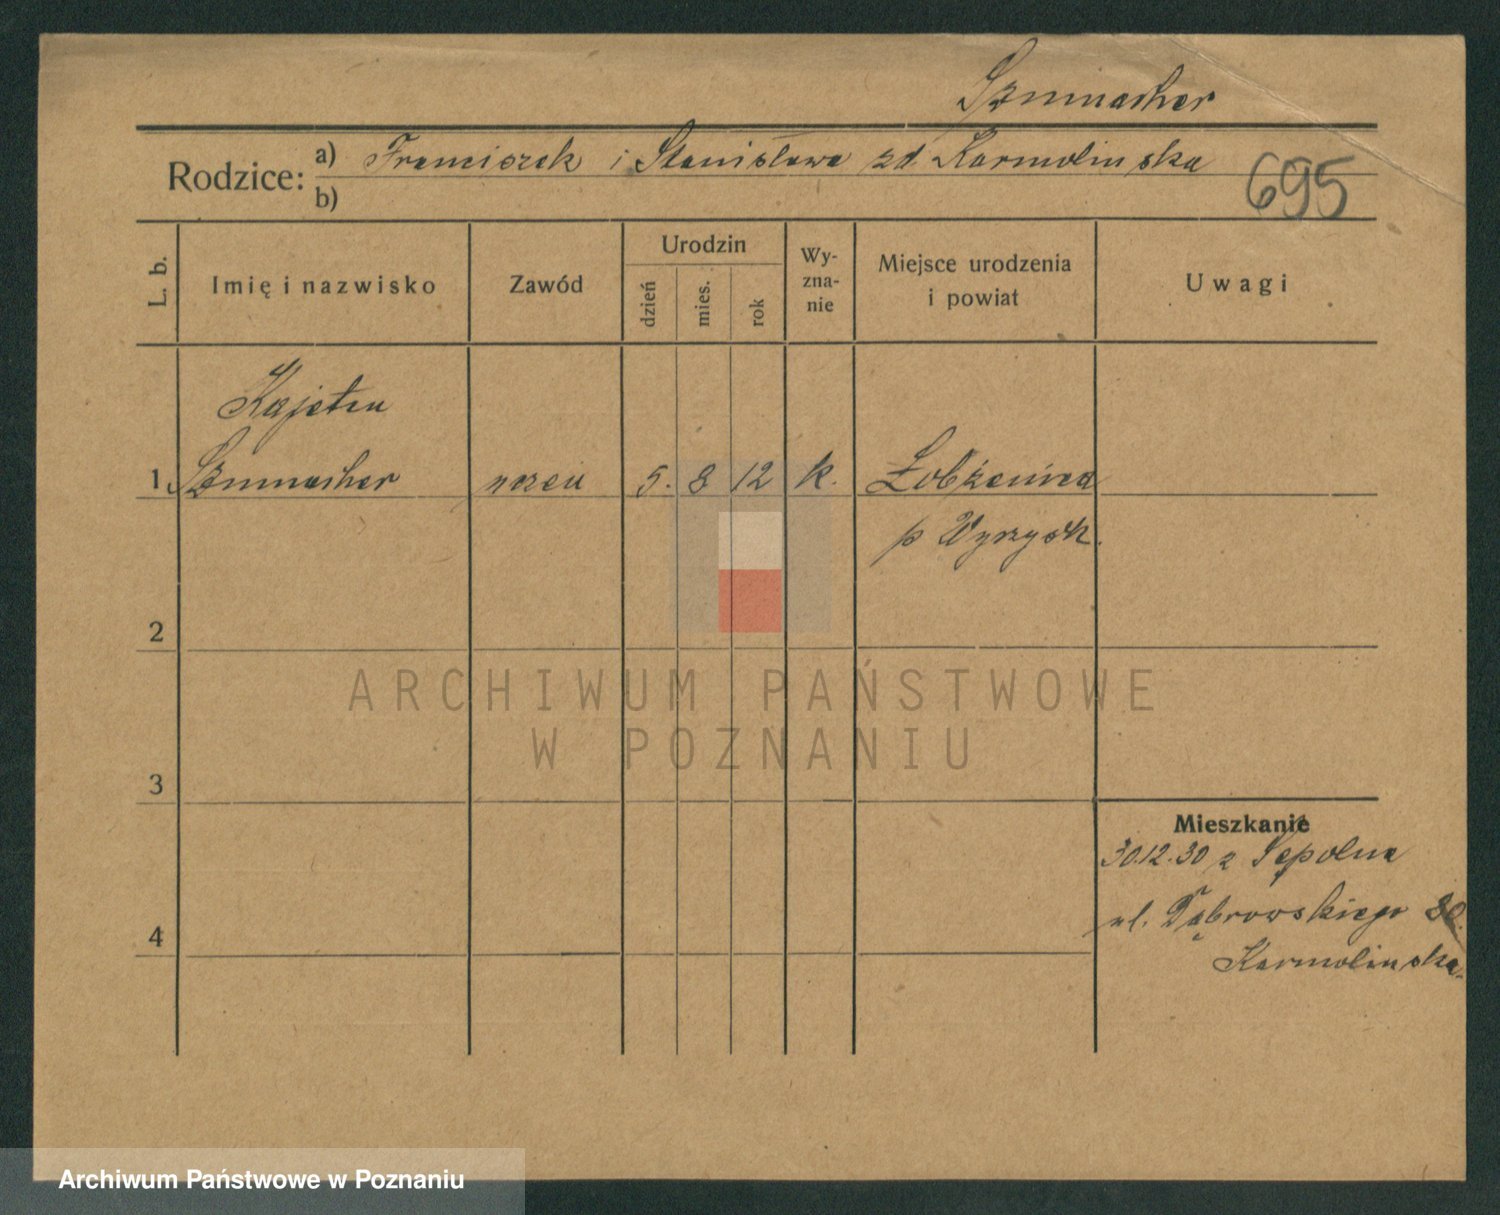 Szumacher
Rodzice: a) Franciszek i Stanisława zd. Karmolinska
b)
695
L. b.
Imię i nazwisko
Zawód
Urodzin
dzień
mies.
rok
Wy-
zna-
nie
Miejsce urodzenia
i powiat
Uwagi
Kajetan
1 Szumacher uczeń 5. 8 12 k. Łobżenica
p Wyrzysk.
2
ARCHIWUM PAŃSTWOWE
W POZNANIU
3
Mieszkanie
30.12.30 z Sępolna
ul. Dąbrowskiego
4
Karmolinska.
Archiwum Państwowe w Poznaniu